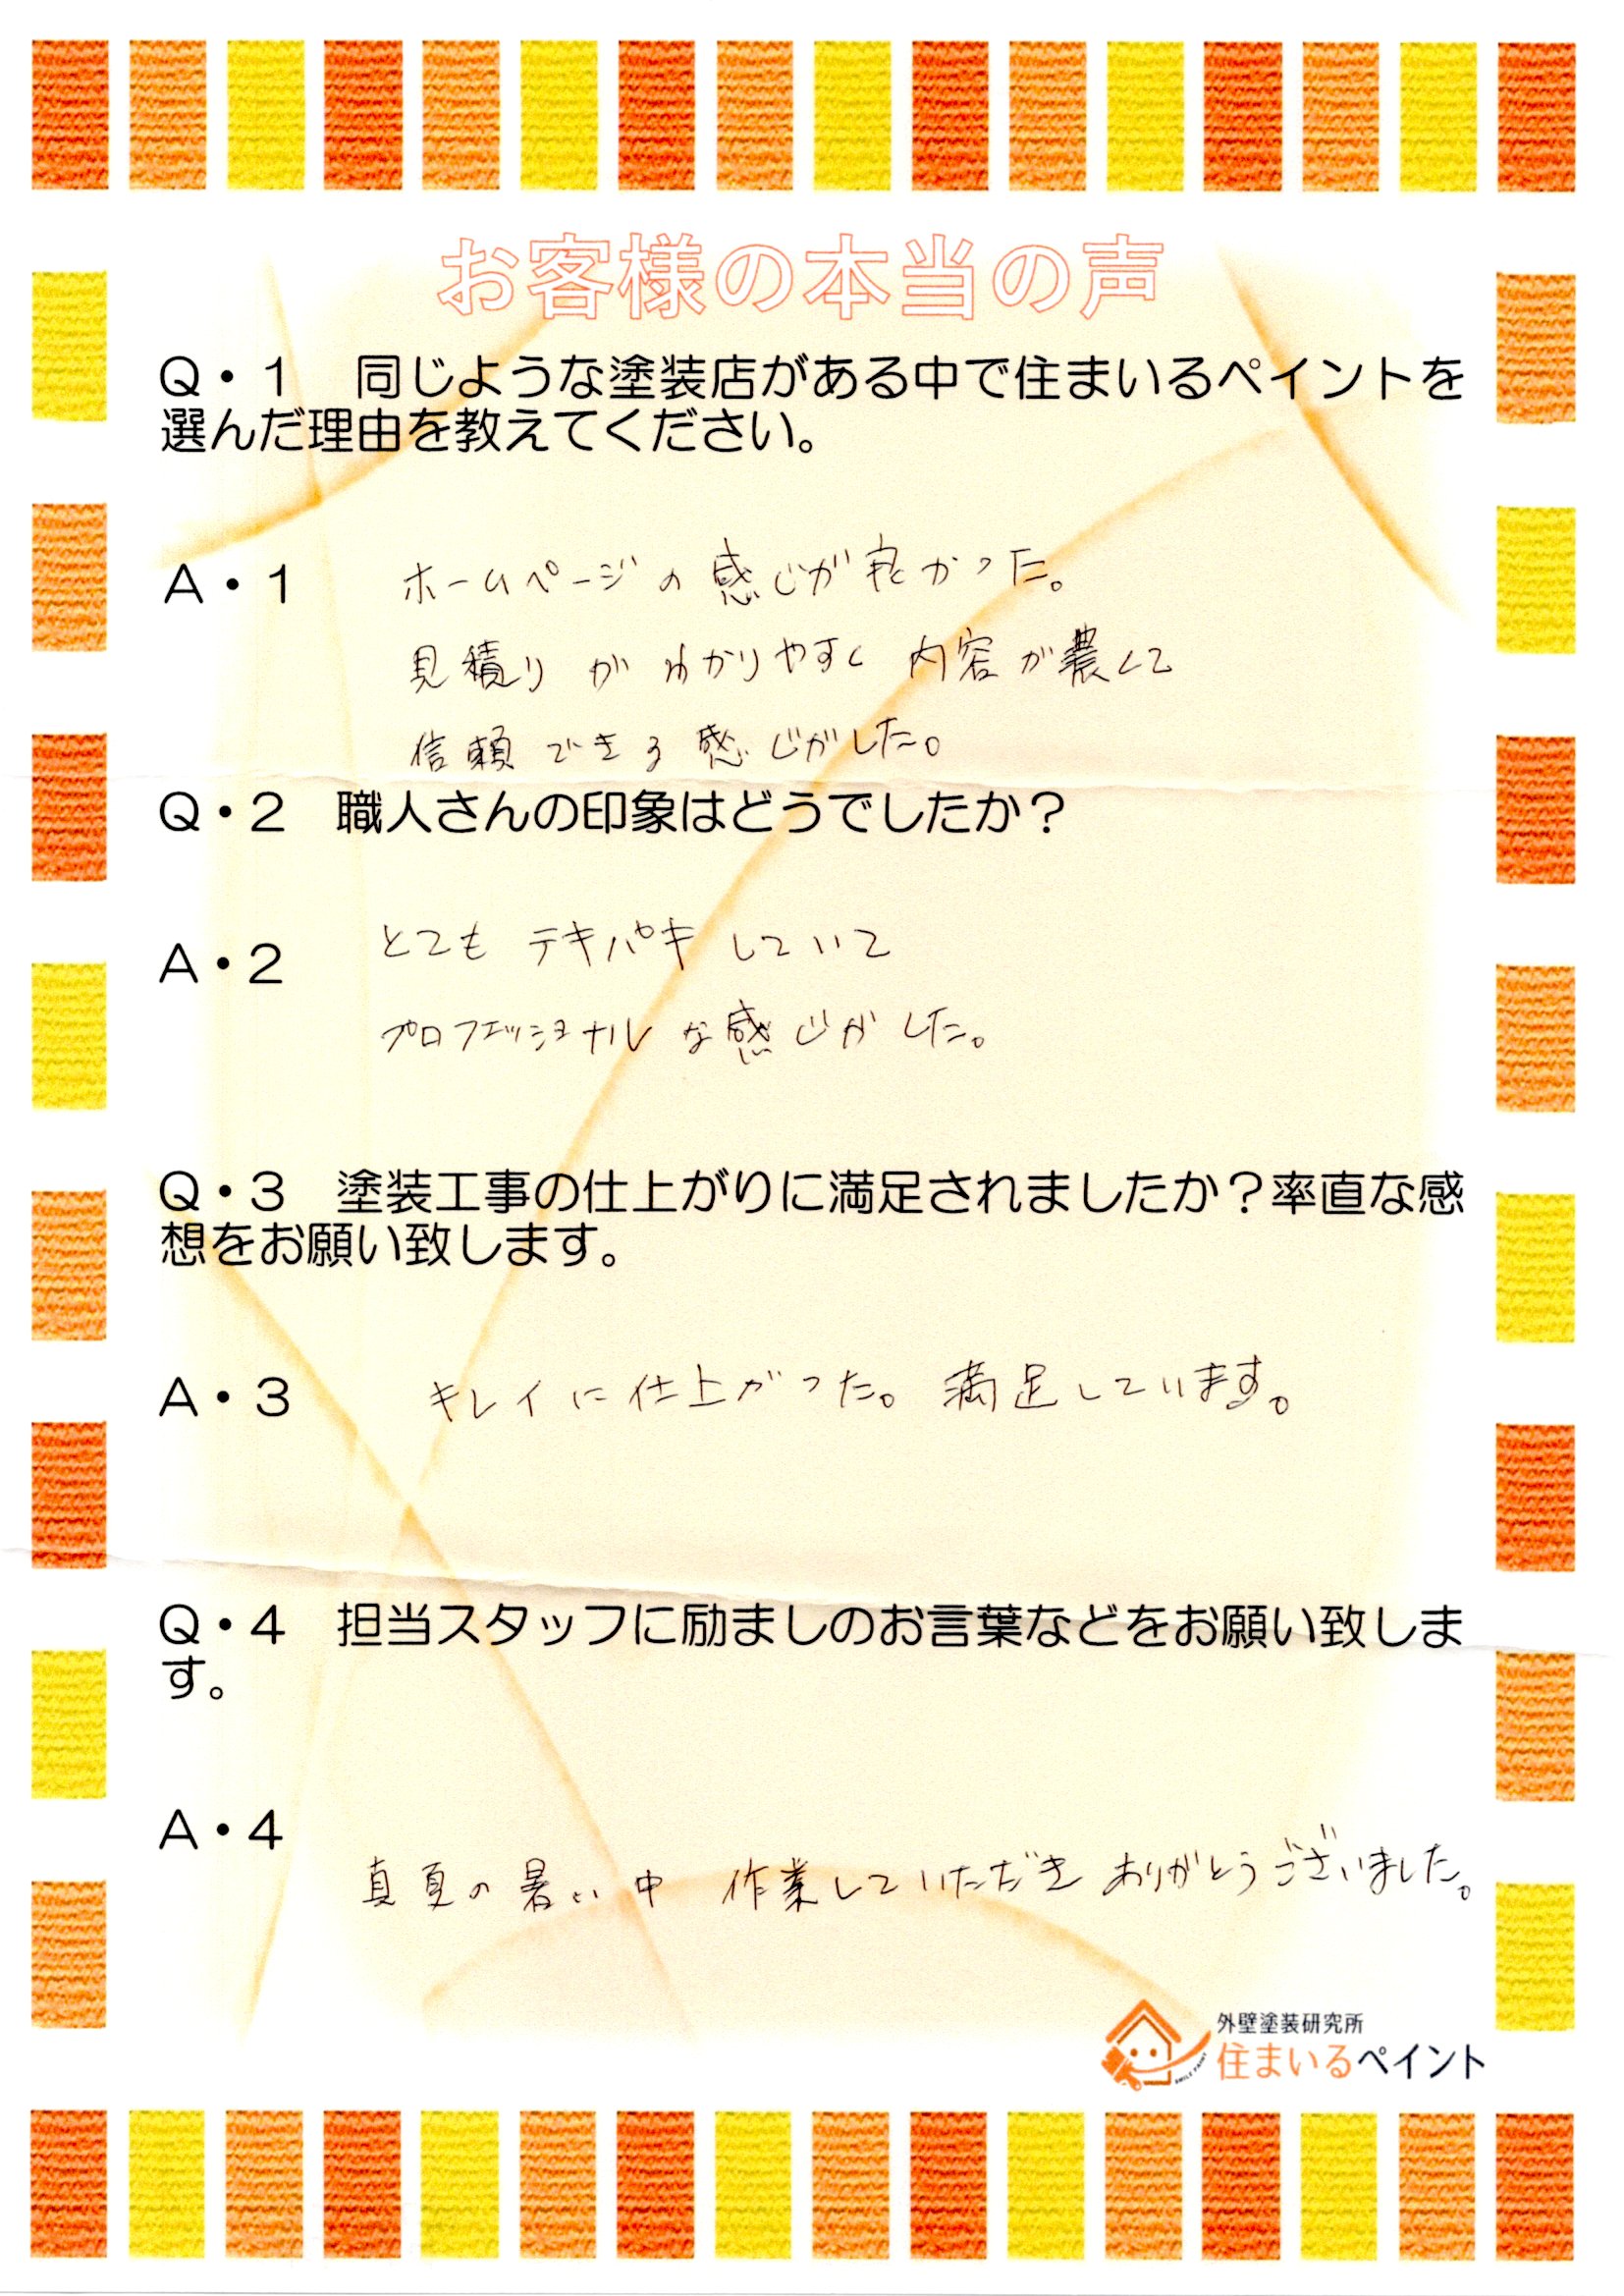 お客様の本当の声
Q・1 同じような塗装店がある中で住まいるペイントを
選んだ理由を教えてください。
A・1 ホームページの感じが良かった。
見積りがわかりやすく 内容が濃くて
信頼できる感じがした。
Q・2 職人さんの印象はどうでしたか？
A・2 とても テキパキしていて
プロフェッショナルな感じがした。
Q・3 塗装工事の仕上がりに満足されましたか？率直な感
想をお願い致します。
A・3 キレイに仕上がった。満足しています。
Q・4 担当スタッフに励ましのお言葉などをお願い致しま
す。
A・4
真夏の暑い中 作業していただき ありがとうございました。
外壁塗装研究所
住まいるペイント
SMILE PAINT